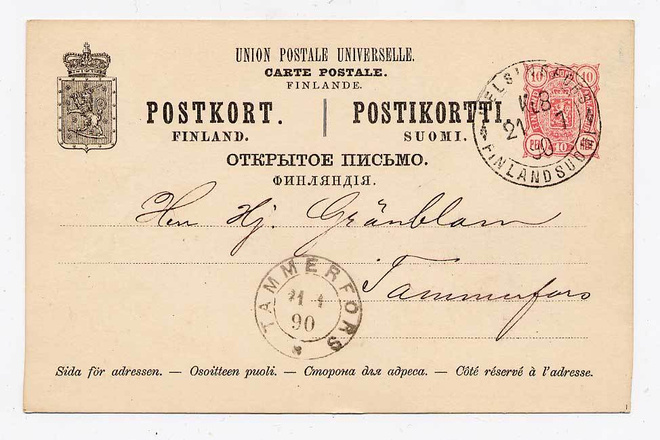 UNION POSTALE UNIVERSELLE.
CARTE POSTALE.
FINLANDE.
POSTKORT. POSTIKORTTI.
FINLAND. SUOMI.
ОТКРЫТОЕ ПИСЬМО.
ФИНЛЯНДІЯ.
10 10
HELSINGFORS
KL 8
21 7
90
FINLANDSUOMI
Herr Hj. Gränblom
Tammerfors
TAMMERFORS
21
90
Sida för adressen. — Osoitteen puoli. — Сторона для адреса. — Côté réservé à l'adresse.